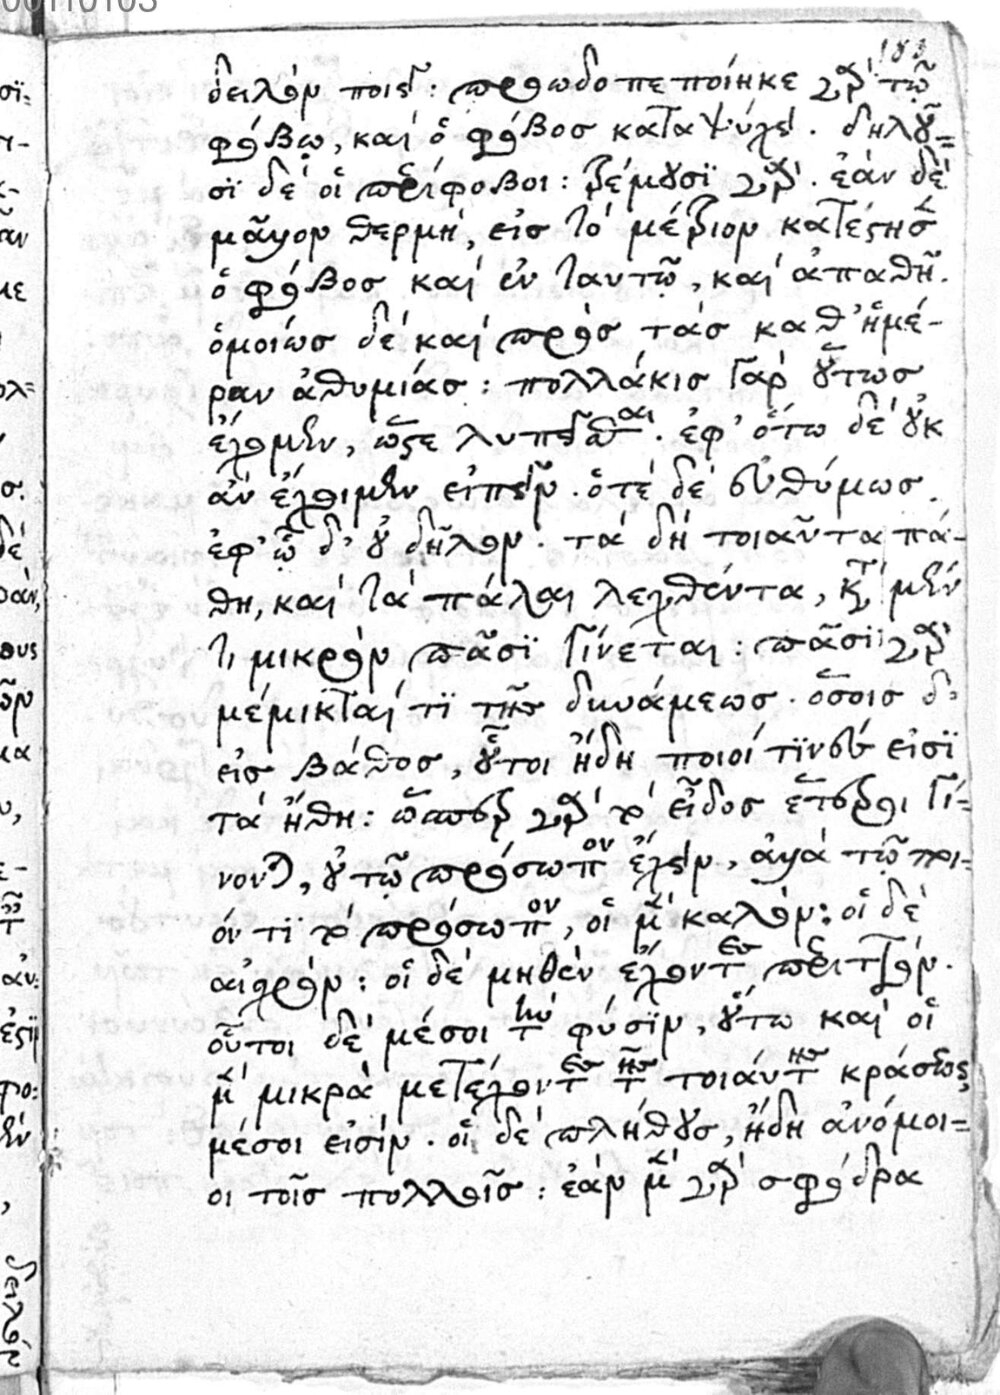 δειλὸν ποιεῖ: προωδοπεποίηκε γὰρ τῶ
φόβω, καὶ ὁ φόβος καταψύχει. δηλοῦ=
σϊ δὲ οἱ περίφοβοι: τρέμουσϊ γὰρ. ἐὰν δὲ
μᾶλλον θερμὴ, εἰς τὸ μέτριον κατέστησ
ὁ φόβος καὶ ἐν ταυτῶ, καὶ ἀπαθῆ.
ὁμοίως δὲ καὶ πρὸς τὰς καθ' ἡμέ-
ραν ἀθυμίας: πολλάκις γὰρ οὕτως
ἔχομεν, ὥστε λυπεῖσθαι. ἐφ' ὅτω δὲ οὐκ
ἂν ἔχοιμεν εἰπεῖν. ὁτὲ δὲ εὐθύμως.
ἐφ' ᾧ δ' οὐ δῆλον. τὰ δὴ τοιαῦτα πά-
θη, καὶ τὰ πάλαι λεχθέντα, κατὰ μὲν
τι μικρὸν πᾶσϊ γίνεται: πᾶσϊ γὰρ
μέμικταί τϊ τῆς δυνάμεως. ὅσοις δ'
εἰς βάθος, οὗτοι ἤδη ποιοί τϊνες εἰσϊ
τὰ ἤθη: ὥσπερ γὰρ τὸ εἶδος ἕτεροι γί=
νονται, οὐ τῶ πρόσωπον ἔχειν, ἀλλὰ τῶ ποι-
όν τϊ τὸ πρόσωπον, οἱ μὲν καλὸν: οἱ δὲ
αἰσχρὸν: οἱ δὲ μηθὲν ἔχοντες περιττὸν.
οὗτοι δὲ μέσοι τὴν φύσϊν, οὕτω καὶ οἱ
μὲν μικρὰ μετέχοντες τῆς τοιαύτης κράσεως
μέσοι εἰσίν. οἱ δὲ πλήθους, ἤδη ἀνόμοι=
οι τοῖς πολλοῖς: ἐὰν μὲν γὰρ σφόδρα